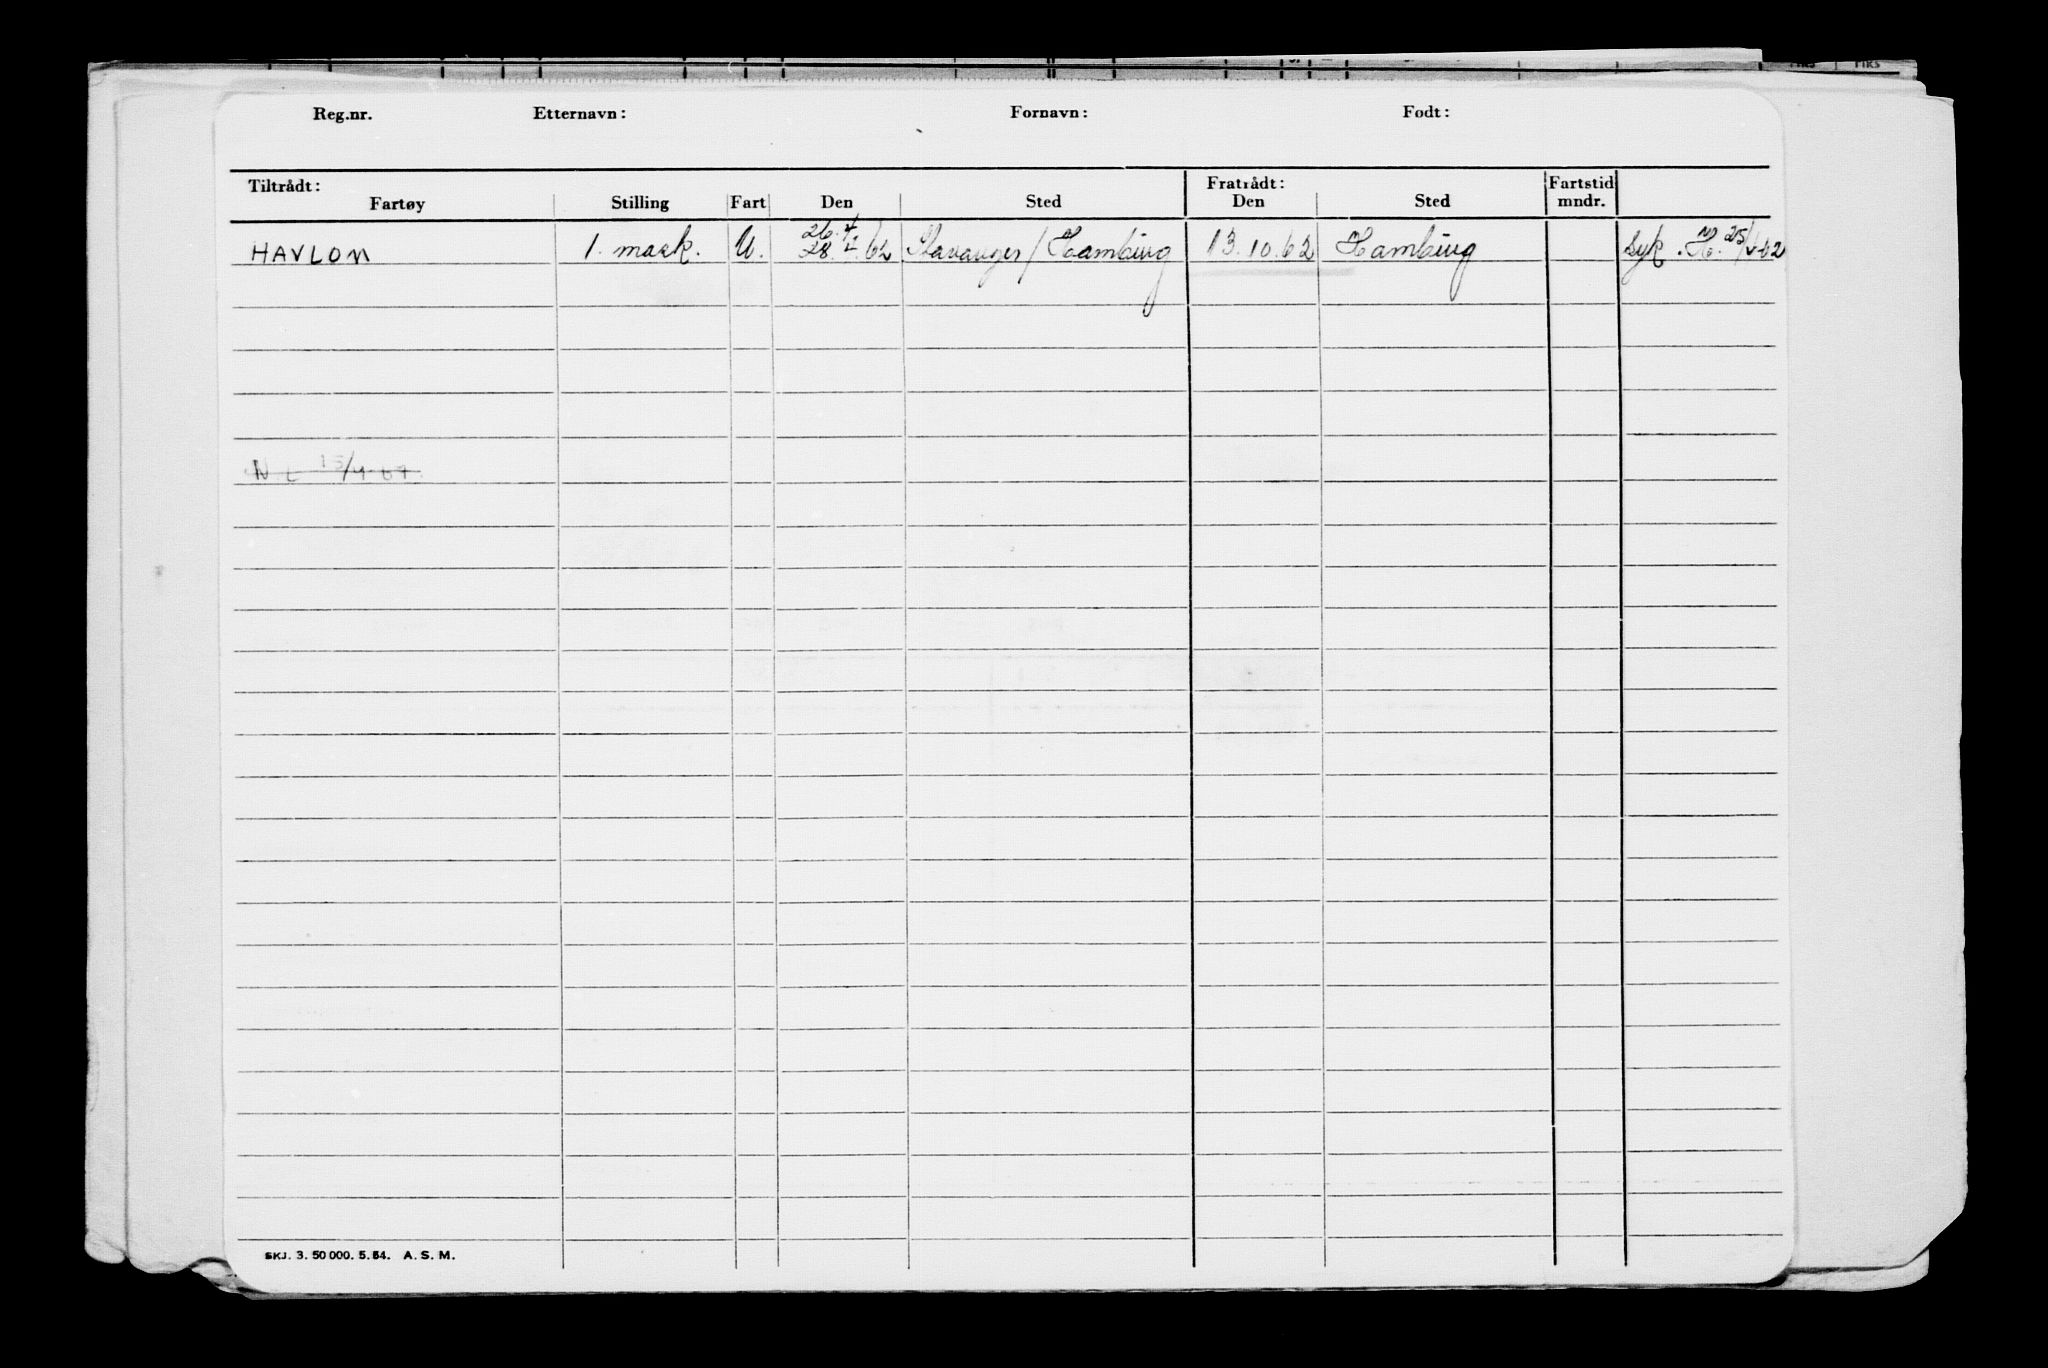 Reg.nr. Etternavn: Fornavn: Født:
Tiltrådt: Fratrådt: Fartstid
Fartøy Stilling Fart Den Sted Den Sted mndr.
26.4
HAVLOM 1. mask. U. 28.4.62 Stavanger/Hamburg 13.10.62 Hamburg Syk.
15/4-67
SKJ. 3. 50 000. 5. 54. A. S. M.